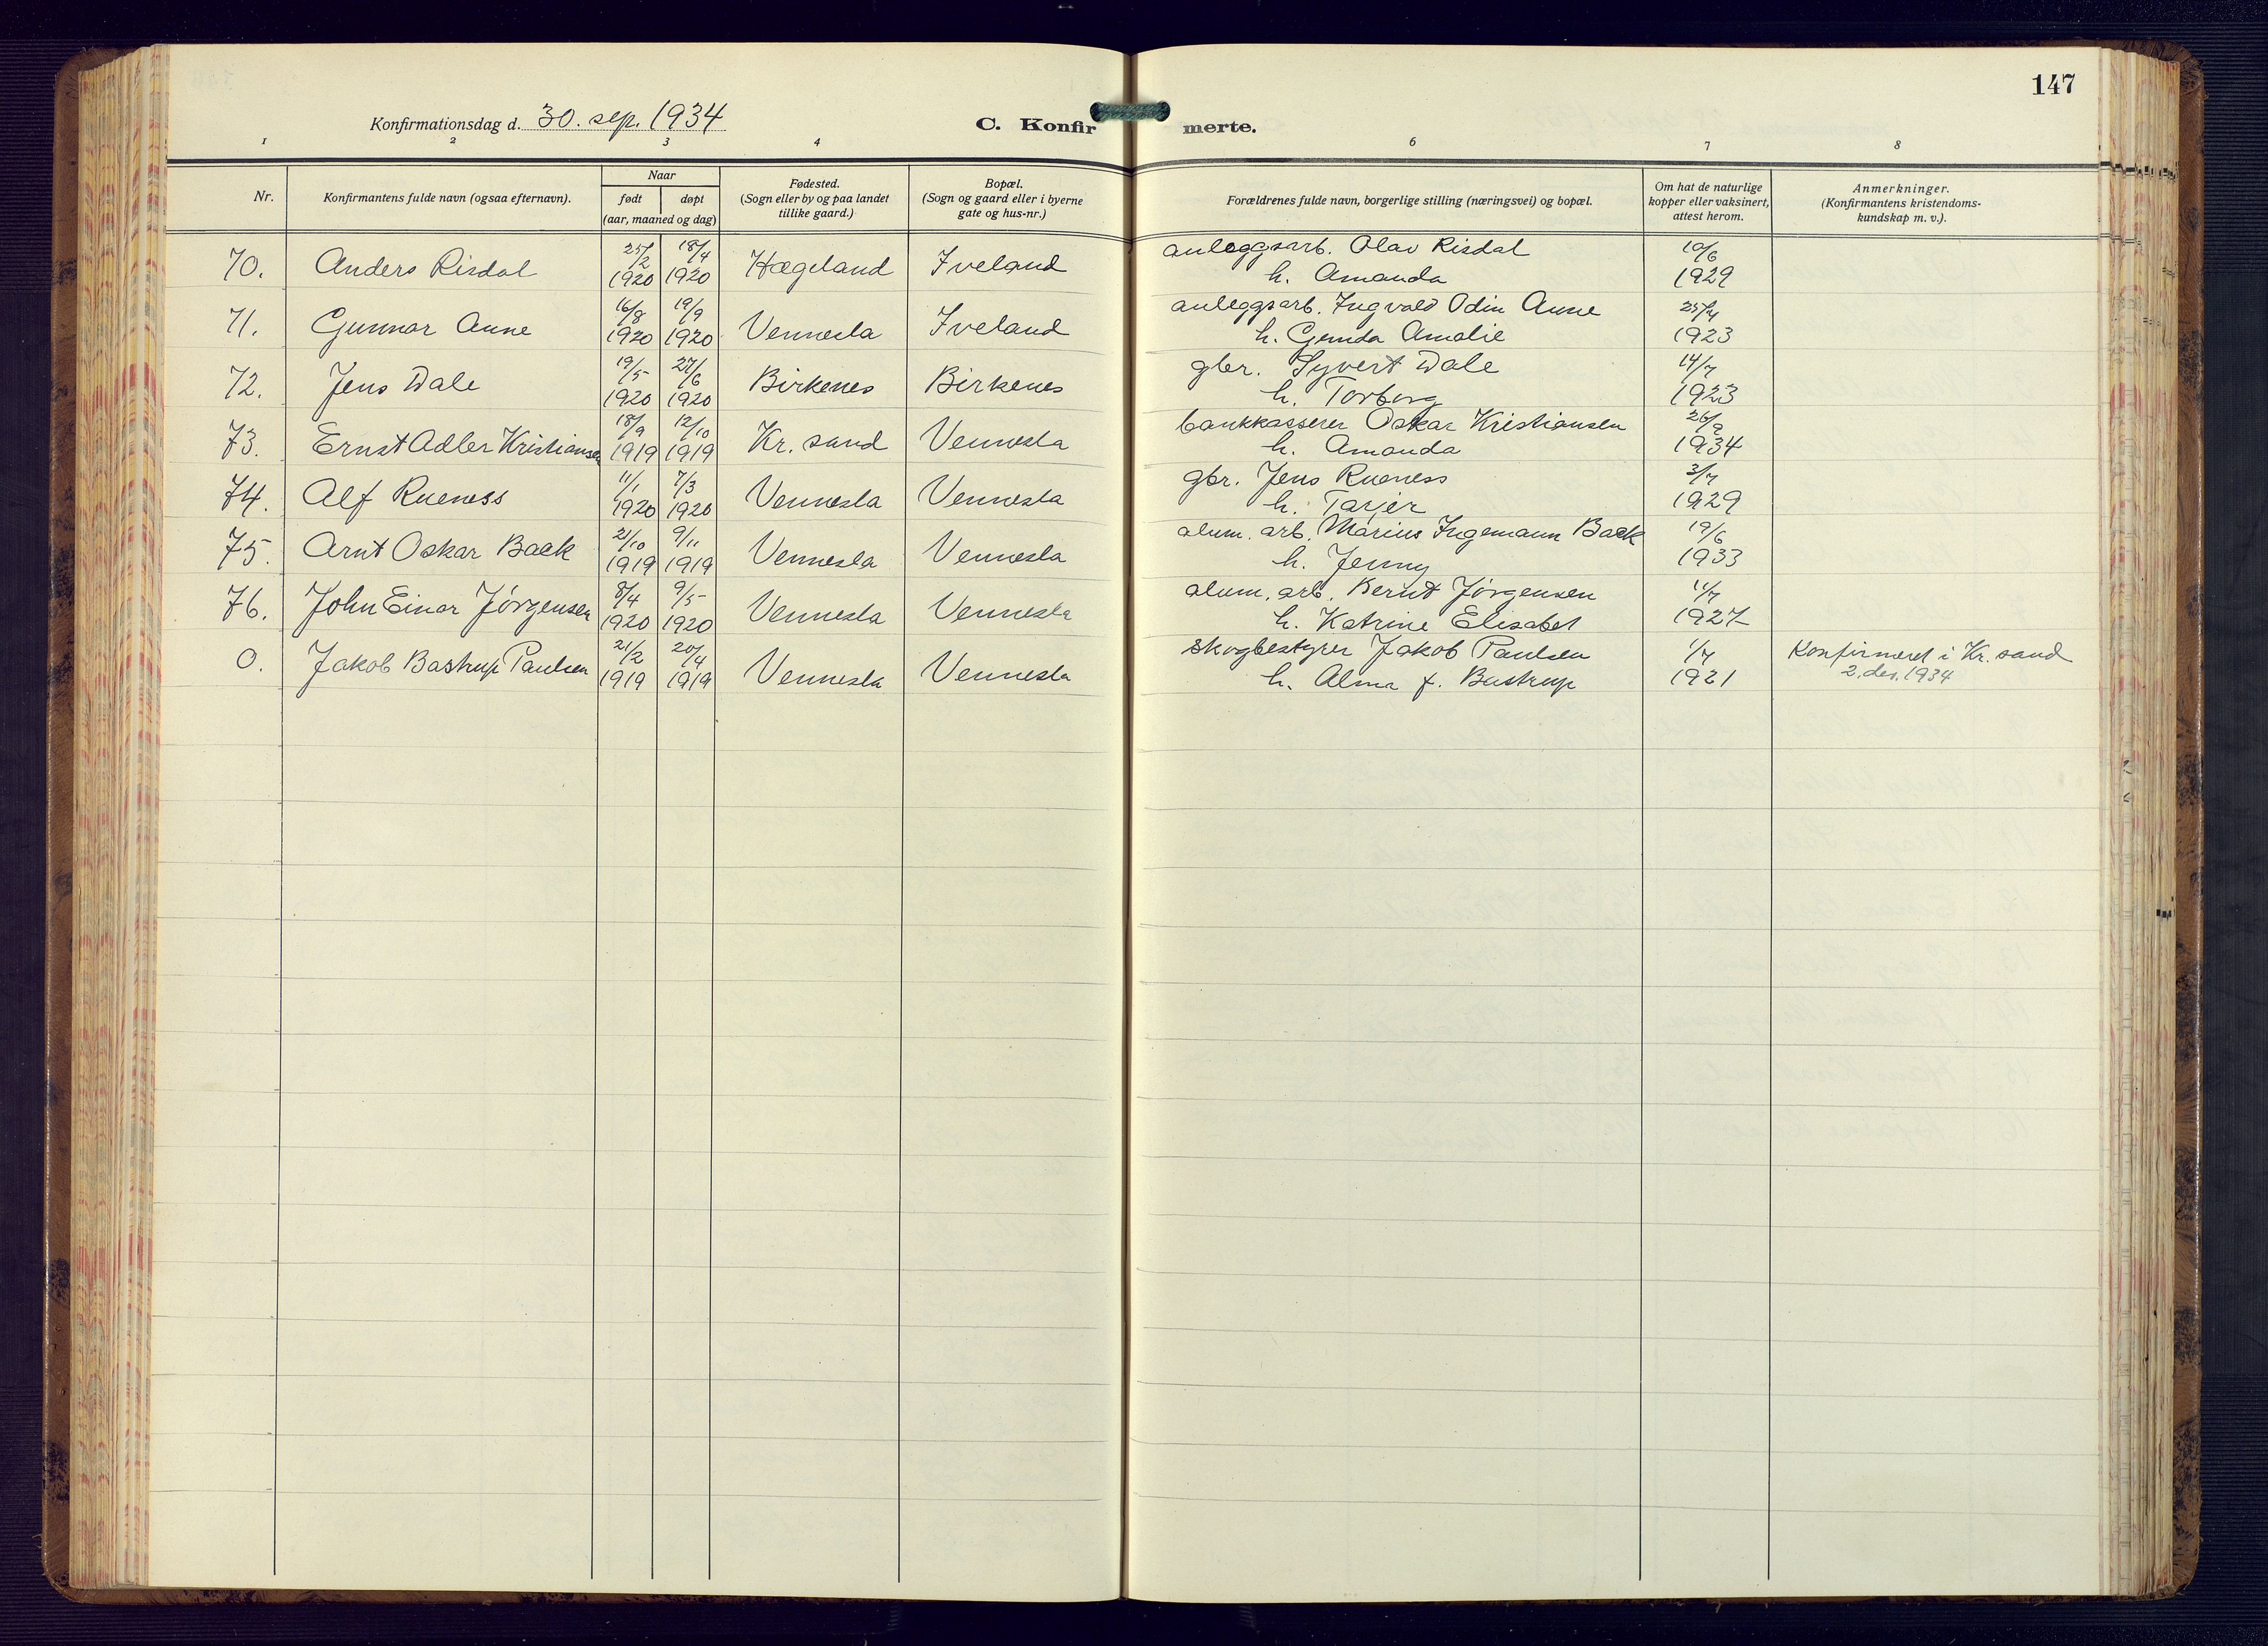 147
Konfirmationsdag d. 30. sep. 1934
C. Konfirmerte.
1 2 3 4 6 7 8
Nr.
Konfirmantens fulde navn (ogsaa efternavn).
Naar
født døpt
(aar, maaned og dag)
Fødested.
(Sogn eller by og paa landet
tillike gaard.)
Bopæl.
(Sogn og gaard eller i byerne
gate og hus-nr.)
Forældrenes fulde navn, borgerlige stilling (næringsvei) og bopæl.
Om hat de naturlige
kopper eller vaksinert,
attest herom.
Anmerkninger.
(Konfirmantens kristendoms-
kundskap m. v.).
25/2 18/4 anleggsarb. Olav Risdal 10/6
70. Anders Risdal 1920 1920 Hægeland Iveland h. Amanda 1929
16/8 19/9 anleggsarb. Ingvald Odin Aune 25/4
71. Gunnar Aune 1920 1920 Vennesla Iveland h. Gemda Amalie 1923
19/5 27/6 gbr. Syvert Dale 14/7
72. Jens Dale 1920 1920 Birkenes Birkenes h. Torborg 1923
18/9 12/10 bankkasserer Oskar Kristiansen 26/2
73. Ernst Adler Kristiansen 1919 1919 Kr. sand Vennesla h. Amanda 1934
11/1 7/3 gbr. Jens Rueness 3/7
74. Alf Rueness 1920 1920 Vennesla Vennesla h. Tarjer 1929
21/10 9/11 alum. arb. Marius Ingemann Baek 19/6
75. Arnt Oskar Baek 1919 1919 Vennesla Vennesla h. Jenny 1933
8/4 9/5 alum. arb. Bernt Jørgensen 11/7
76. John Einar Jørgensen 1920 1920 Vennesla Vennesla h. Katrine Elisabet 1927
21/2 20/4 skogbestyrer Jakob Paulsen 1/7 Konfirmeret i Kr. sand
0. Jakob Bastrup Paulsen 1919 1919 Vennesla Vennesla h. Alma f. Bastrup 1921 2. des. 1934